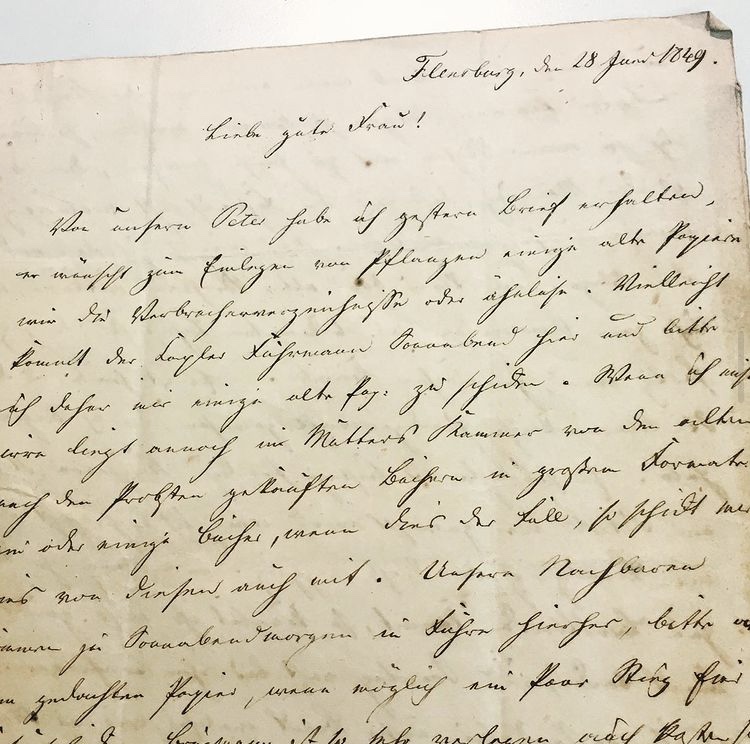 Flensburg, den 28 Juni 1849.
Liebe gute Frau!
Von unserm Peter habe ich gestern Brief erhalten,
er wünscht zum Einlegen von Pflanzen einige alte Papiere
wie die Verbrecherverzeichnisse oder ähnliche. Vielleicht
kommt der Fuhrmann Sonnabend hier und bitte
ich daher mir einige alte Pap: zu schicken. Wenn ich nicht
irre liegt annoch in Mutters Kammer von den alten
nach den Probsten gekauften Büchern in großem Formate
ein oder einige Bücher, wenn dies der Fall, so schickt mir
eins von diesen auch mit. Unsere Nachbaren
kommen ja Sonnabendmorgen in Fuhre hierher, bitte
gedachten Papier, wenn möglich ein Paar Stieg Eier
ist so sehr verlegen auch kosten